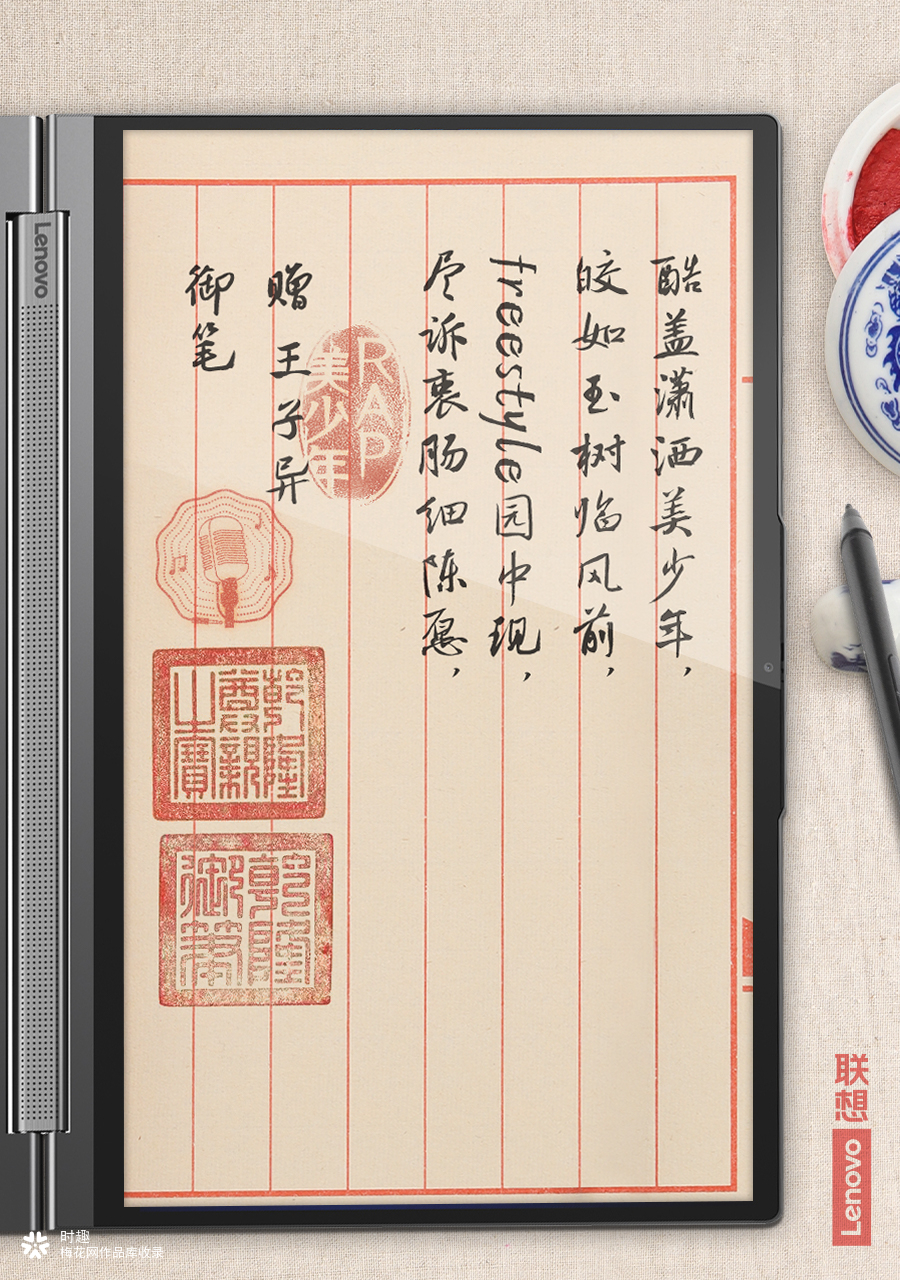 酷盖潇洒美少年，
皎如玉树临风前，
freestyle园中现，
尽诉衷肠细陈愿，
RAP
美少年
赠 王子异
御笔
乾隆
尊亲
之宝
乾隆
御笔
Lenovo
联想
Lenovo
时趣
梅花网作品库收录